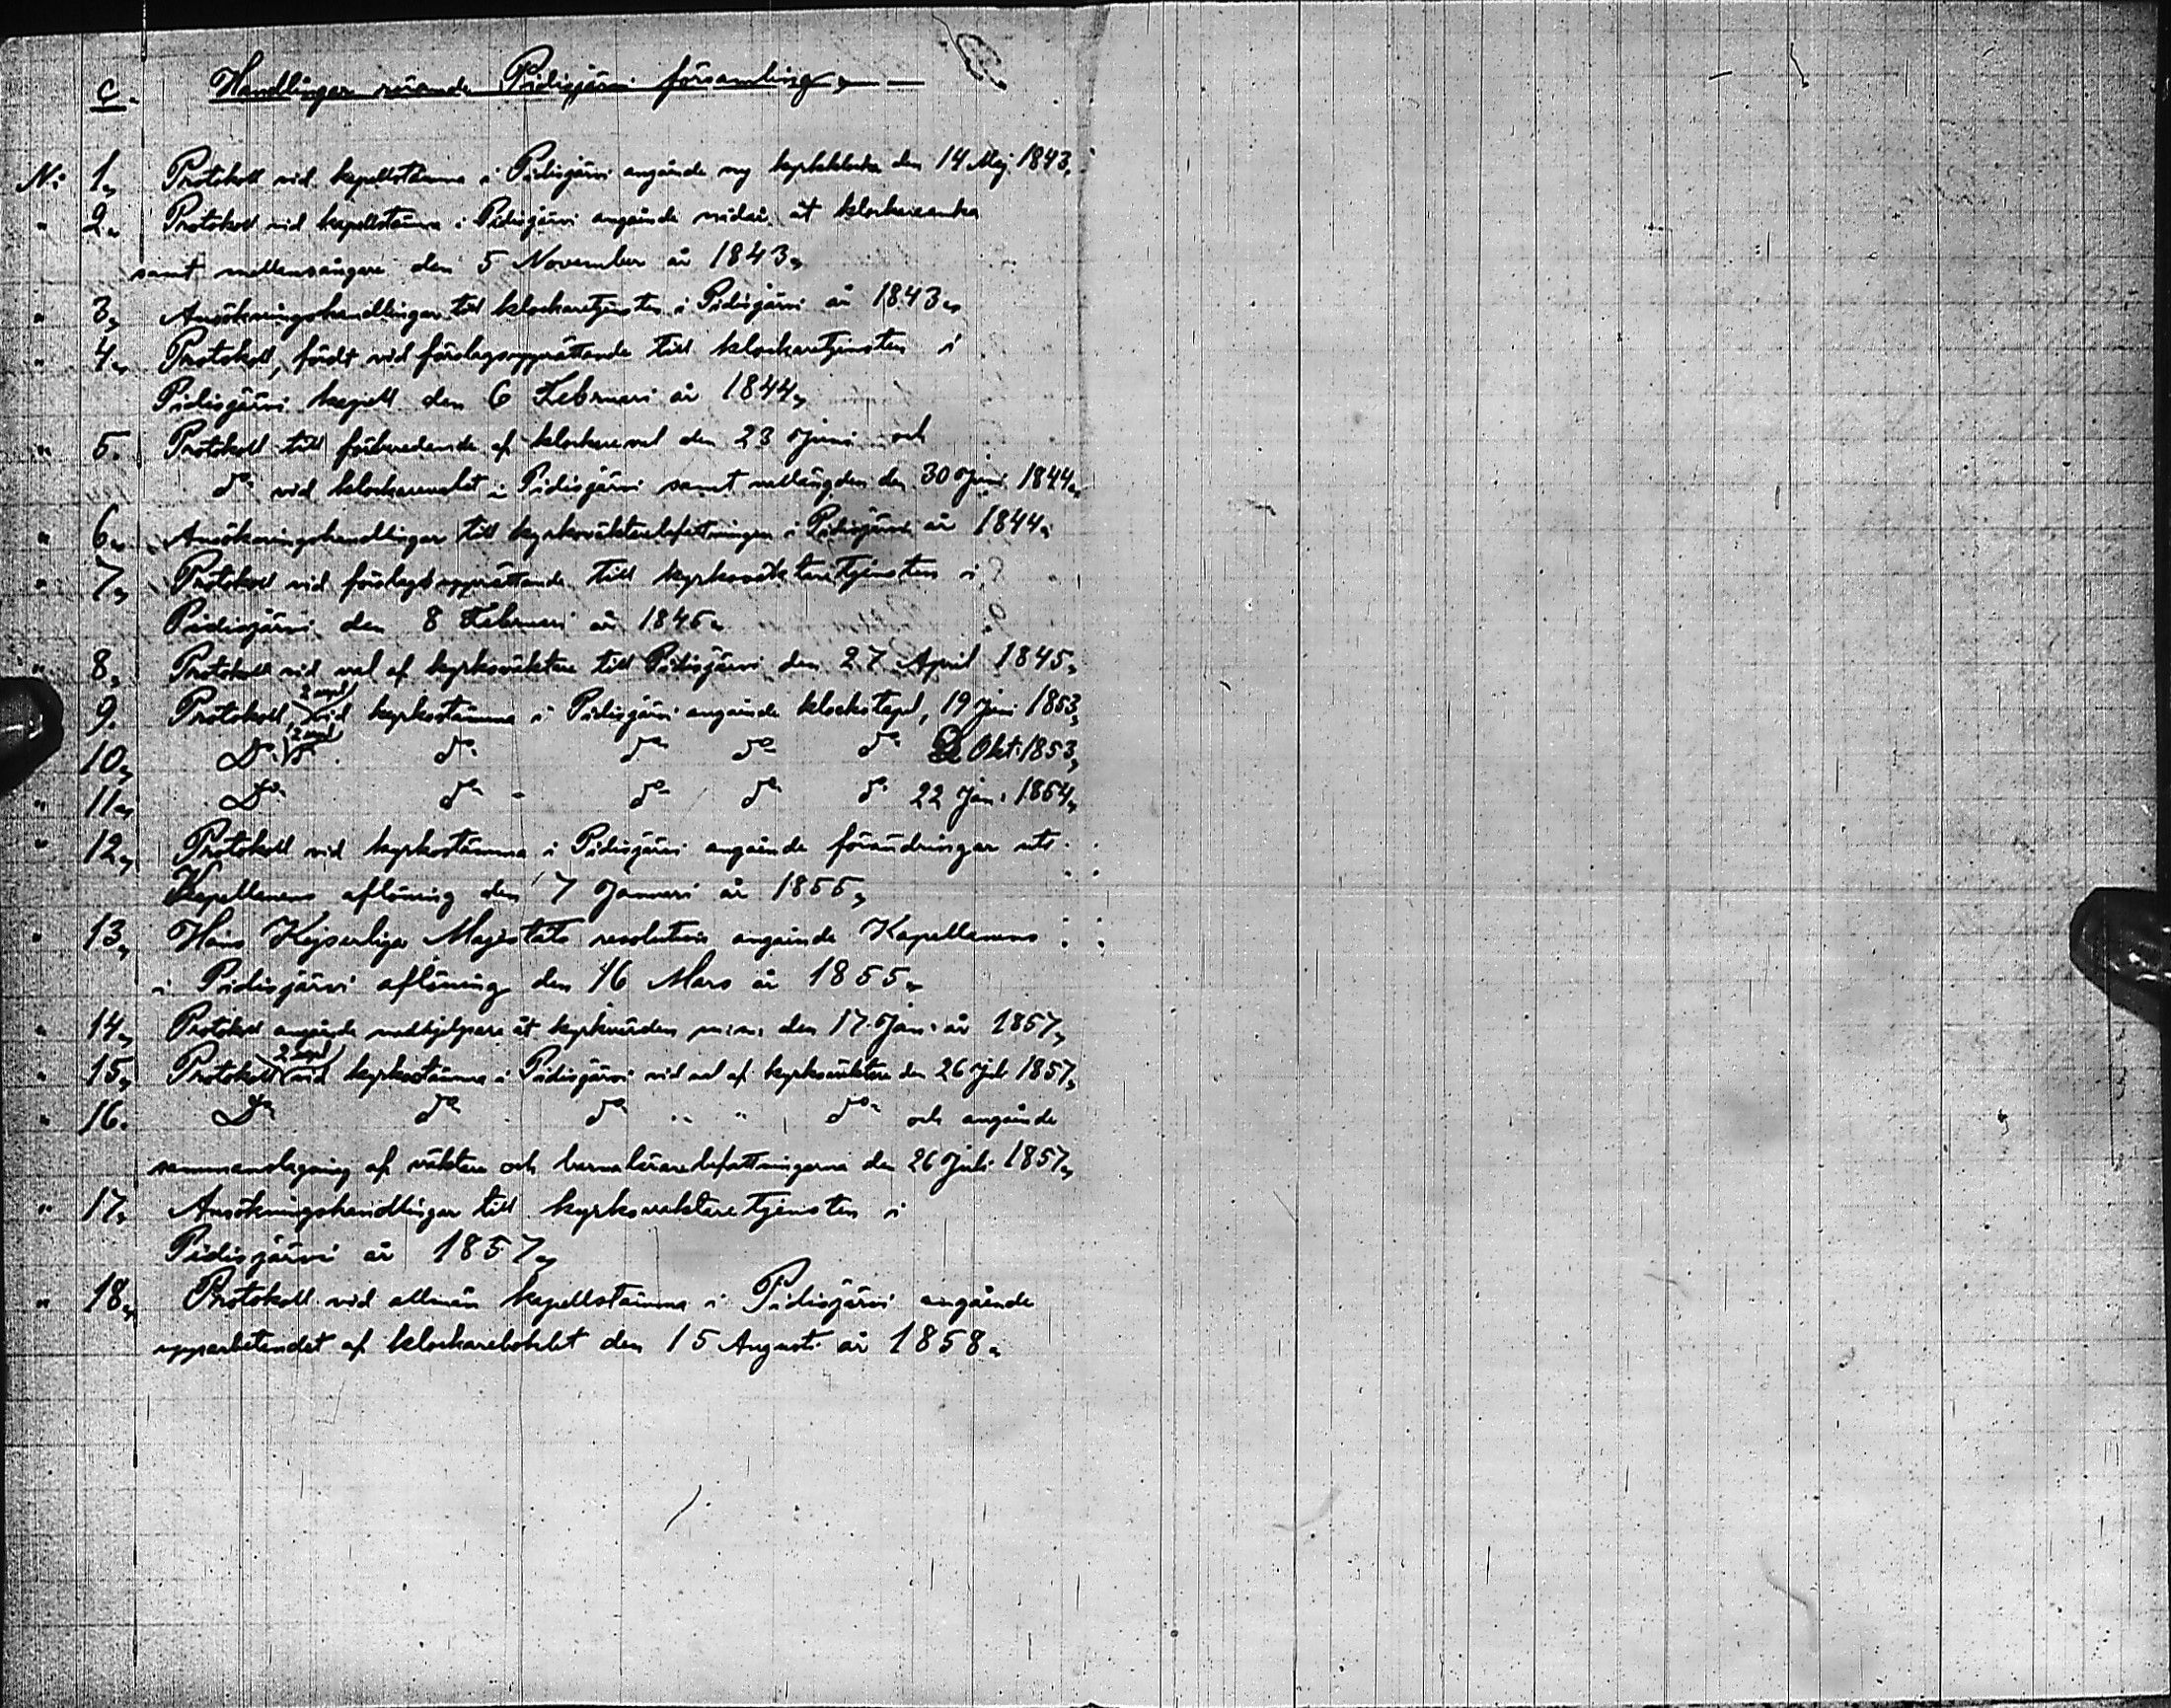 C. Handlingar rörande Pidisjärvi församling
N: 1, Protokoll vid kapellstämma i Pidisjärvi angående ny kyrkoklocka den 14 Maj 1843,
" 2, Protokoll vid kapellstämma i Pidisjärvi angående åt klockareenka
samt den 5 November år 1843,
" 3, Ansökningshandlingar till klockaretjensten i Pidisjärvi år 1843,
" 4, Protokoll, fördt vid förslagsupprättande till klockaretjensten i
Pidisjärvi kapell den 6 Februari år 1844,
" 5. Protokoll till förberedande af klockareval den 23 Juni och
do vid klockarevalet i Pidisjärvi samt vallängden den 30 Juni 1844,
" 6, Ansökningshandlingar till kyrkoväktarebefattningen i Pidisjärvi år 1844,
" 7, Protokoll vid förslagsupprättande till kyrkoväktaretjensten i
Pidisjärvi den 8 Februari år 1845,
" 8, Protokoll vid val af kyrkoväktare till Pidisjärvi den 27 April 1845,
2 expl
9. Protokoll, vid kyrkostämma i Pidisjärvi angående klockstapel, 19 Juni 1853,
2 expl
10, Do do do do do do 2 Okt. 1853,
" 11, Do do do do do 22 Jan. 1854,
" 12, Protokoll vid kyrkostämma i Pidisjärvi angående förändringar uti
Kapellanens aflöning den 7 Januari år 1855,
" 13, Hans Kejserliga Majestäts resolution angående Kapellanens
i Pidisjärvi aflöning den 16 Mars år 1855,
" 14, Protokoll angående medhjelpare åt kyrkvärden m.m. den 17 Jan. år 1857,
2 expl
" 15, Protokoll vid kyrkostämma i Pidisjärvi vid val af kyrkoväktare den 26 Juli 1857,
" 16. Do do do " " do och angående
sammanslagning af väktare och barnalärarebefattningarna den 26 Juli 1857,
" 17, Ansökningshandlingar till kyrkovaktaretjensten i
Pidisjärvi år 1857,
" 18, Protokoll vid allmän kapellstämma i Pidisjärvi angående
upparbetandet af klockarebolet den 15 Augusti år 1858,